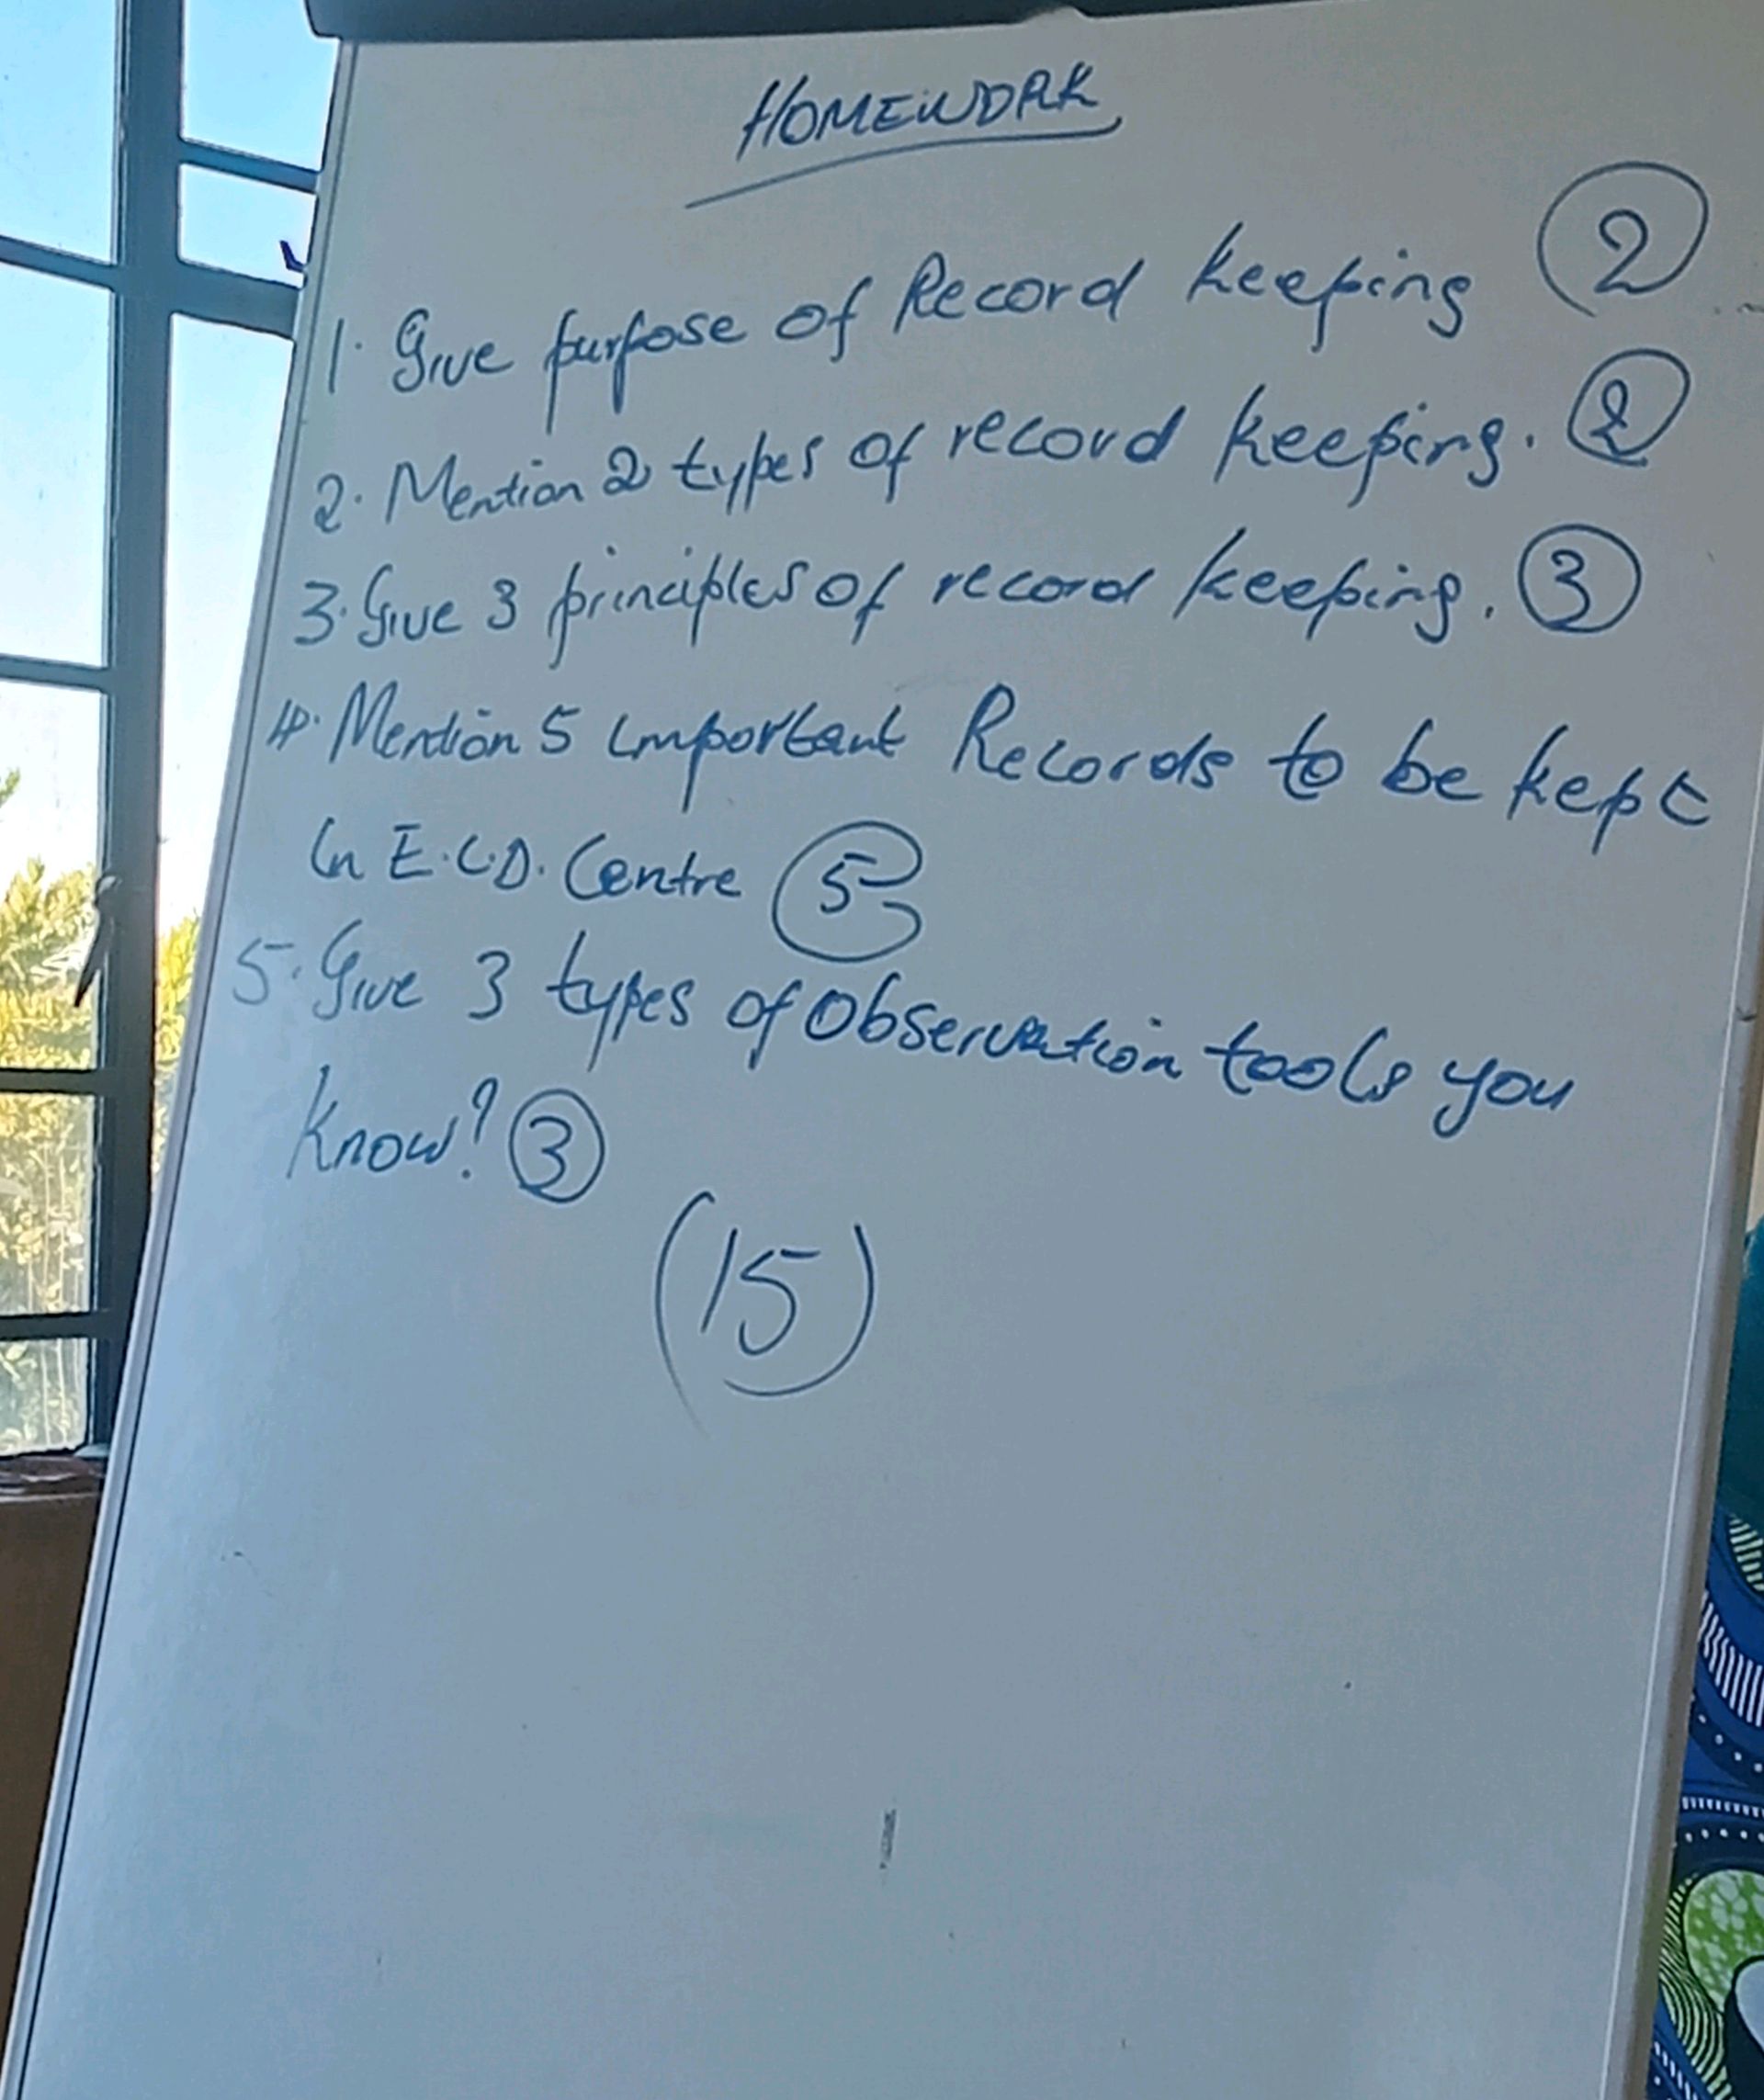 HOMEWORK
1. Give purpose of Record keeping 2
2. Mention 2 types of record keeping. 2
3. Give 3 principles of record keeping. 3
4. Mention 5 important Records to be kept
in E.C.D. Centre 5
5. Give 3 types of Observation tools you
know? 3
(15)